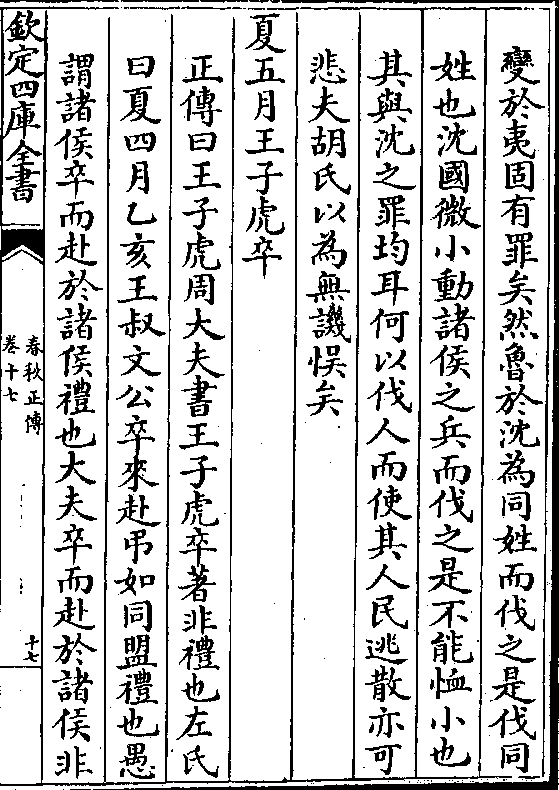 變於夷固有罪矣然魯於沈為同姓而伐之是伐同
姓也沈國微小動諸侯之兵而伐之是不能恤小也
其與沈之罪均耳何以伐人而使其人民逃散亦可
悲夫胡氏以為無譏悞矣
夏五月王子虎卒
正傳曰王子虎周大夫書王子虎卒著非禮也左氏
曰夏四月乙亥王叔文公卒來赴弔如同盟禮也愚
謂諸侯卒而赴於諸侯禮也大夫卒而赴於諸侯非
欽定四庫全書
春秋正傳
卷十七
十七